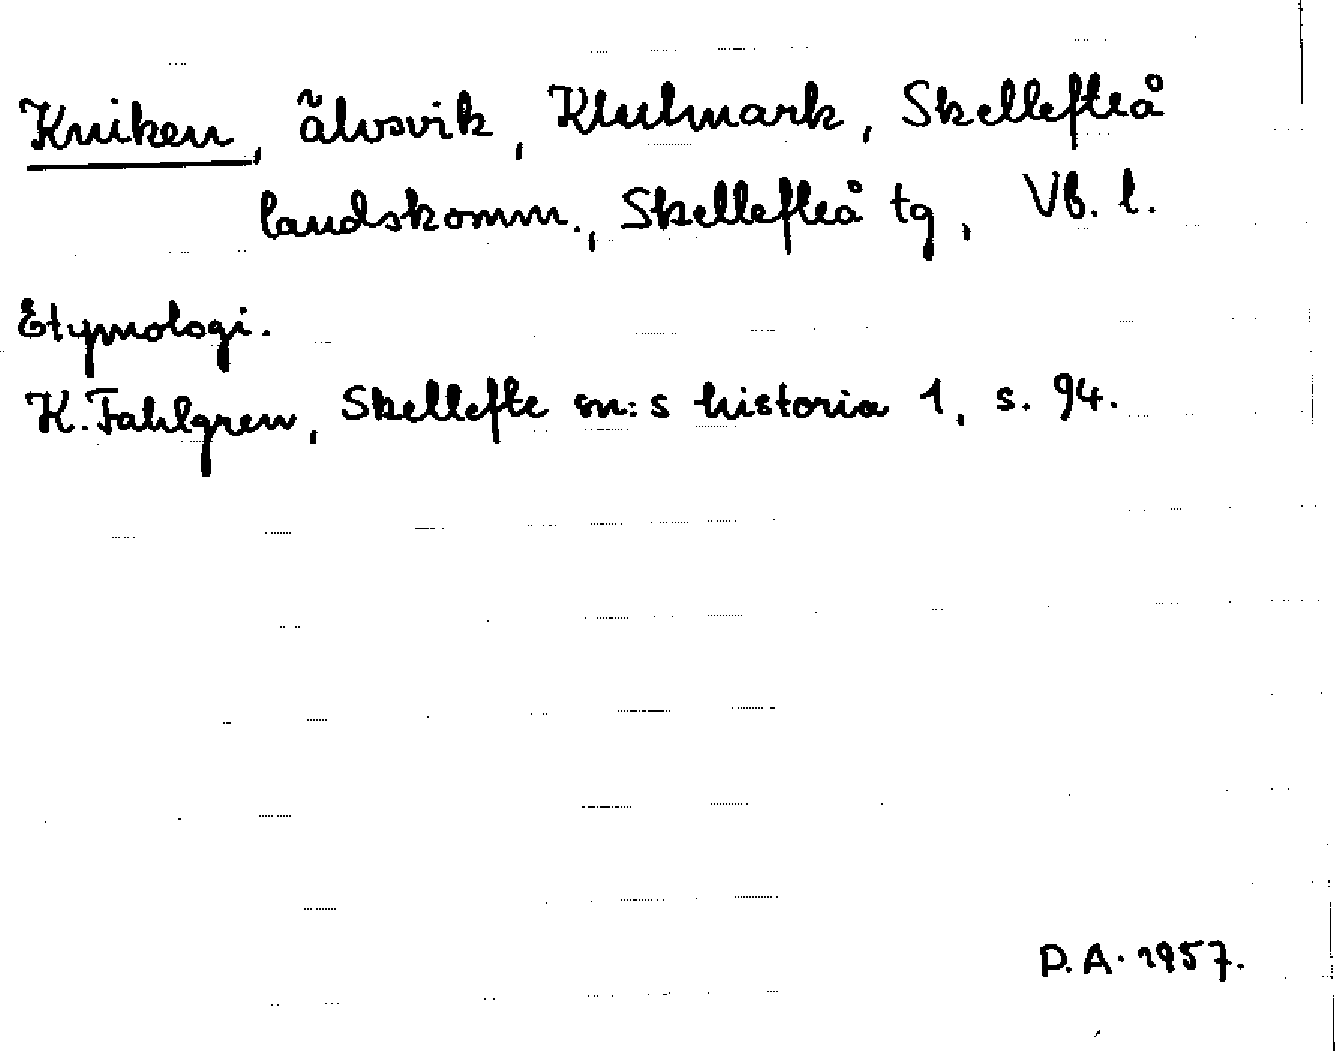 Kniken, älvsvik, Klutmark, Skellefteå
landskomm., Skellefteå tg, Vb. l.
Etymologi.
K. Fahlgren, Skellefte sn:s historia 1, s. 94.
P.A. 1957.